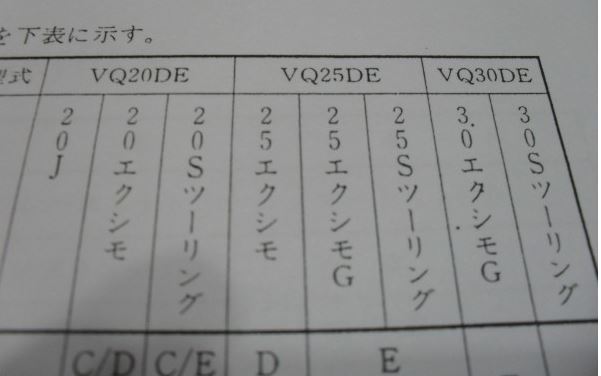 を下表に示す。
型式 VQ20DE VQ25DE VQ30DE
20J
20エクシモ
20Sツーリング
25エクシモ
25エクシモG
25Sツーリング
3.0エクシモG
30Sツーリング
C/D C/E D E